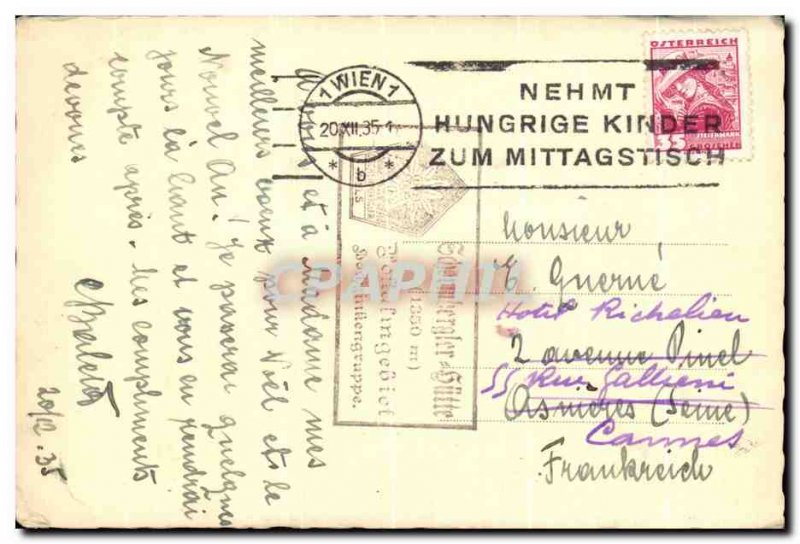 A vous et à Madame mes
meilleurs vœux pour Noël et le
Nouvel An! Je passerai quelques
jours là haut et vous en rendrai
compte après. Mes compliments
dévoués
20/12.35
1 WIEN 1
20.XII.35-1
* b *
NEHMT
HUNGRIGE KINDER
ZUM MITTAGSTISCH
ÖSTERREICH
35 GROSCHEN
Hütte
(1350 m)
CAPHIL
Monsieur
E. Guerné
Hotel Richelieu
2 avenue Pinel
55 Rue Gallieni
Asnières (Seine)
Cannes
Frankreich